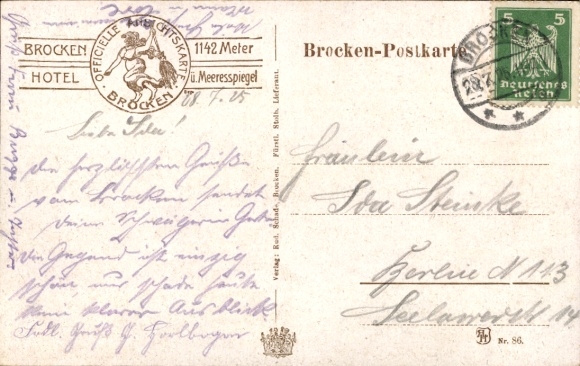 BROCKEN
HOTEL
OFFICIELLE ANSICHTSKARTE
BROCKEN
1142 Meter
ü. Meeresspiegel
Brocken-Postkarte
BROCKEN
5 5
Deutsches
Reich
28.7.25
Liebe Ida!
Die herzlichsten Grüße
vom Brocken sendet
Deine Schwägerin
Die Gegend ist einzig
schön, nur schade heute
kein klarer Ausblick
Frdl. Gruß
Verlag: Rud. Schade, Brocken. Fürstl. Stolb. Lieferant.
Fräulein
Ida Steinke
Berlin N 113
Seelowerstr 14
Nr. 86.